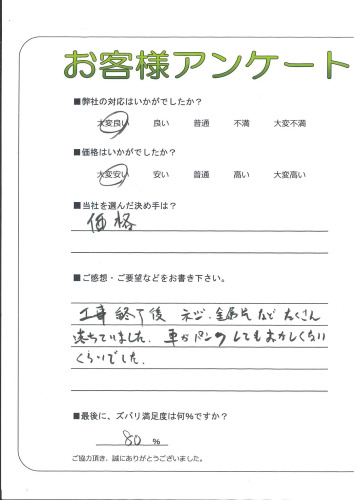 お客様アンケート
■弊社の対応はいかがでしたか？
大変良い 良い 普通 不満 大変不満
■価格はいかがでしたか？
大変安い 安い 普通 高い 大変高い
■当社を選んだ決め手は？
価格
■ご感想・ご要望などをお書き下さい。
工事終了後 ネジ、金属片など たくさん
落ちていました。車がパンクしてもおかしくない
くらいでした。
■最後に、ズバリ満足度は何％ですか？
80 %
ご協力頂き、誠にありがとうございました。